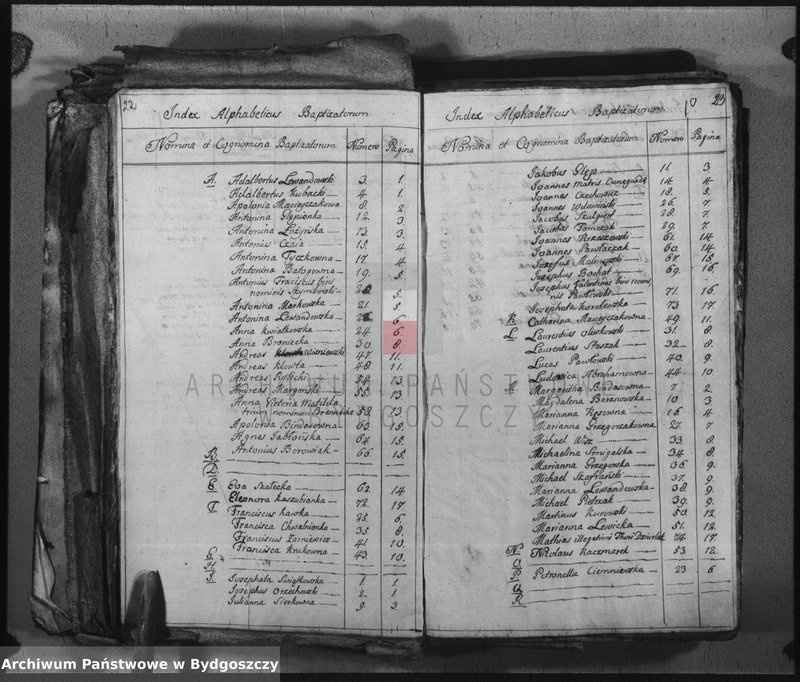 22
Index Alphabeticus Baptizatorum
Nomina et Cognomina Baptizatorum Numero Pagina
A. Adalbertus Lewandowski 3. 1.
Adalbertus Kubacki 4. 1.
Apolonia Macieyczakowa 8. 2.
Antonina Glepionka 12. 3
Antonina Lożynska 13. 3.
Antonius Czaia 15. 4
Antonina Tyczkowna 17. 4
Antonina Batogowna 19. 5.
Antonius Franciscus bini
nominis Szymborski 5.
Antonina Markowska 21. 5
Antonina Lewandowska 6.
Anna Kwiatkowska 24 6.
Anna Broniecka 30. 8.
Andreas Wisniewski 47. 11.
Andreas Klowta 48 11.
Andreas Rybicki 54 13
Andreas Margonski 55. 13
Anna Victoria Matilda
trium nominum 58. 13
Apolonia Bindasowna 63 15.
Agnes Jabłońska 64. 15.
Antonius Borowiak 66. 15.
B.
D.
E. Eva Szałecka 62. 14
Eleonora Kaszubianka 72. 17
F. Franciscus Kawka 25. 6.
Francisca Chwabionka 35. 8.
Franciscus Zarniewicz 41. 10
Francisca Krukowna 43. 10.
G.
H.
J. Josephata Swiątkowska 1. 1.
Josephus Orzechowski 2. 1.
Julianna Siorkowna 9. 3.
23
Index Alphabeticus Baptizatorum
Nomina et Cognomina Baptizatorum Numero Pagina
Jakobus Glep 11. 3.
Joannes Matris Cunegundę 14. 4
Joannes Czechowicz 18. 5
Joannes Wdowinski 26. 7.
Jacobus Szulgiert 28. 7.
Jacobus Tomczak 29. 7.
Joannes Brzeszewski 61. 14
Joannes Pawlaczak 60. 14
Josefus Malinowski 67. 15
Josephus Bochat 69. 16
Josephus Valentinus bini nomi
nis Pawłowski 71. 16
Josephata Karolewska 73 17
K. Catharina Macieyczakowna 49. 11.
L. Laurentius Olewkowski 31. 8
Laurentius Staszak 32. 8
Lucas Pawłowski 40. 9.
Ludovica Abrahamowna 44. 10
M. Margaritha Bindasowna 7 2
Magdalena Boranowska 10. 3
Marianna Kęsowna 16. 4
Marianna Grzegorzakowna 27. 7
Michael Wisz 33. 8.
Michaelina Smigalska 34 8.
Marianna Grzegorska 36. 9.
Michael Szafrański 37. 9.
Marianna Lewandowska 38 9
Michael Pietrzak 39. 9.
Martinus Kurowski 50. 12
Marianna Lewicka 51. 12.
Mathias illegitimi Thori Dziurlek 74. 17.
N. Nicolaus Kaczmarek 53. 12.
O.
P. Petronella Ciemniewska 23 6
Q.
R.
ARCHIWUM PAŃSTWOWE
W BYDGOSZCZY
Archiwum Państwowe w Bydgoszczy